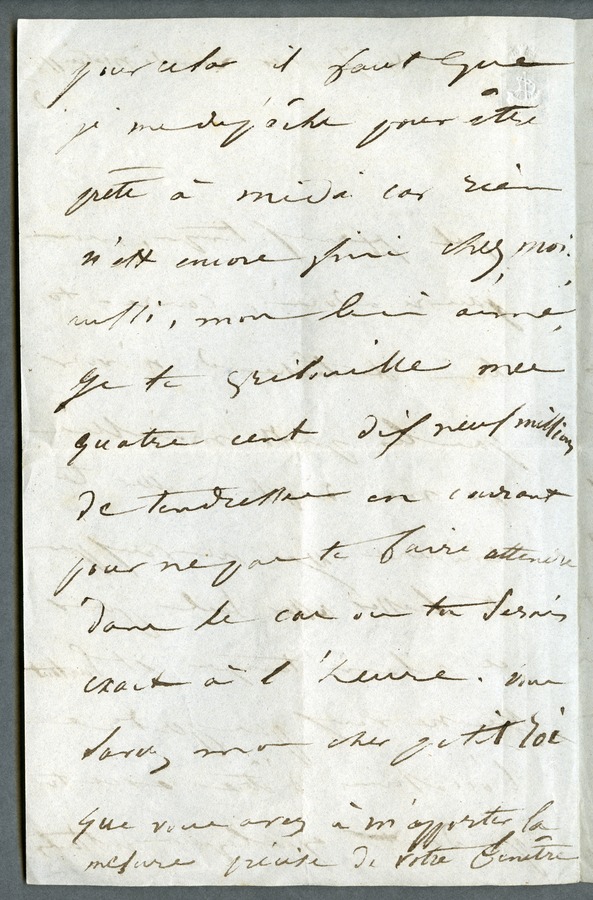 pour cela il faut que
je me dépêche pour être
prête à midi car rien
n'est encore fini chez moi.
aussi, mon bien aimé,
je te gribouille mes
quatre cent dix neuf millions
de tendresses en courant
pour ne pas te faire attendre
dans le cas où tu serais
exact à l'heure. Vous
savez mon cher petit Toto
que vous avez à m'apporter la
mesure précise de votre fenêtre